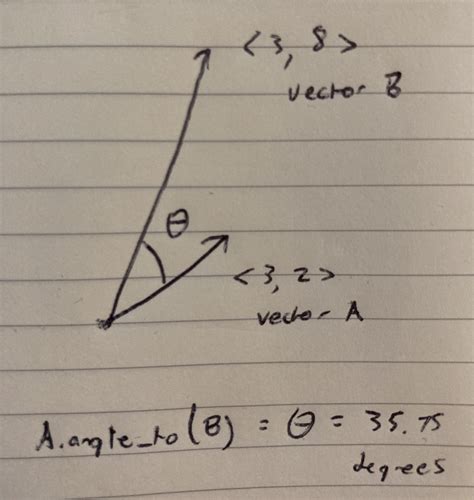 <3, 8>
vector B
θ
<3, 2>
vector A
A.angle_to(B) = θ = 35.75
degrees